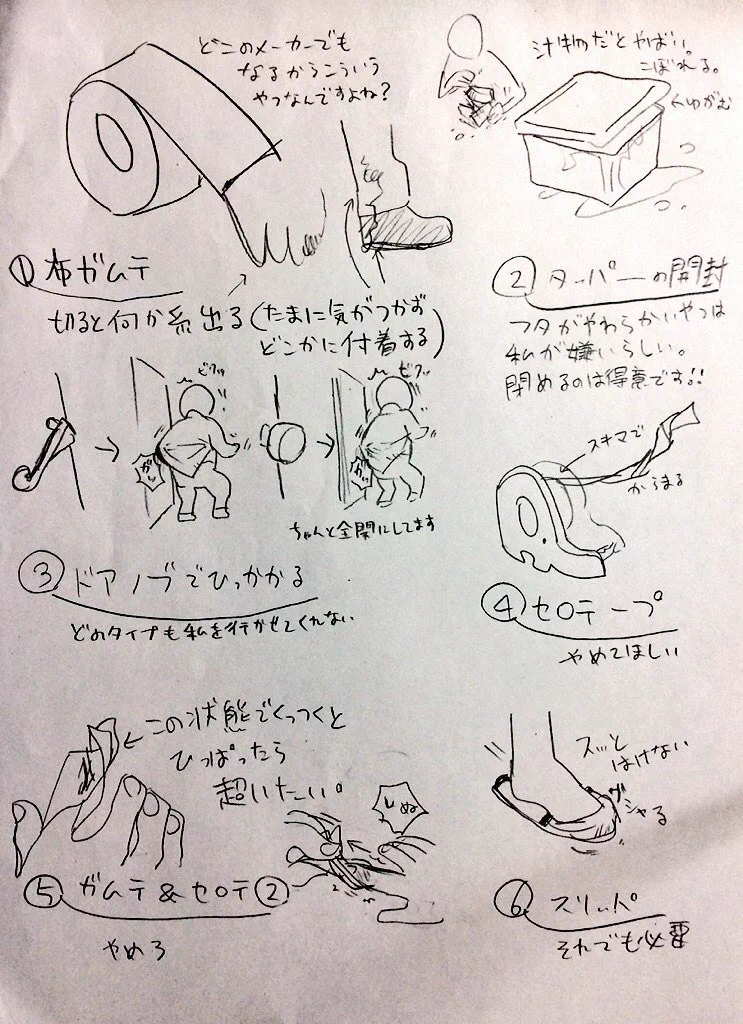 どこのメーカーでも
なるからこういう
やつなんですよね？
① 布ガムテ
切ると何か糸出る(たまに気がつかず
どこかに付着する)
汁物だとやばい。
こぼれる。
←ゆがむ
② タッパーの開封
フタがやわらかいやつは
私が嫌いらしい。
閉めるのは得意です!!
ビクッ
ガッ
ビクッ
ガッ
ちゃんと全開にしてます
③ ドアノブでひっかかる
どのタイプも私を行かせてくれない
スキマで
からまる
④ セロテープ
やめてほしい
←この状態でくっつくと
ひっぱったら
超いたーい。
しぬ
⑤ ガムテ&セロテ②
やめろ
スッと
はけない
グシャる
⑥ スリッパ
それでも必要